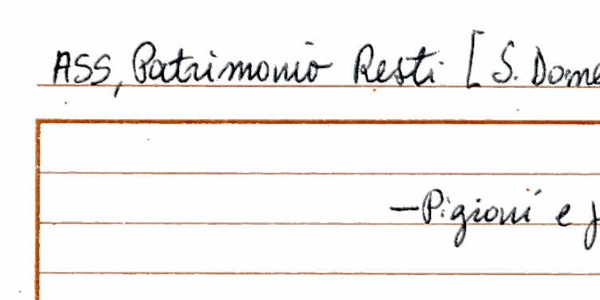 ASS, Patrimonio Resti [ S. Dome
– Pigioni e f